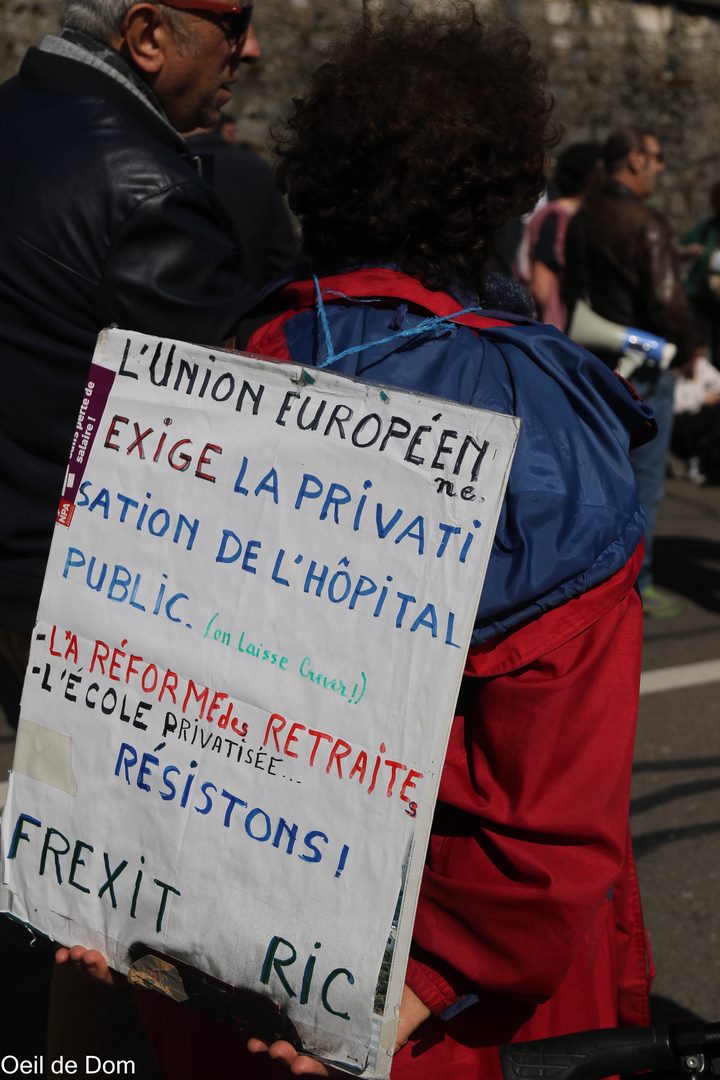 L'UNION EUROPÉEN
ne.
EXIGE LA PRIVATI
SATION DE L'HÔPITAL
PUBLIC. (on Laisse Crever!)
-LA RÉFORME des RETRAITEs
-L'ÉCOLE PRIVATISÉE...
RÉSISTONS!
FREXIT
RIC
sans perte de
salaire !
NPA
Oeil de Dom